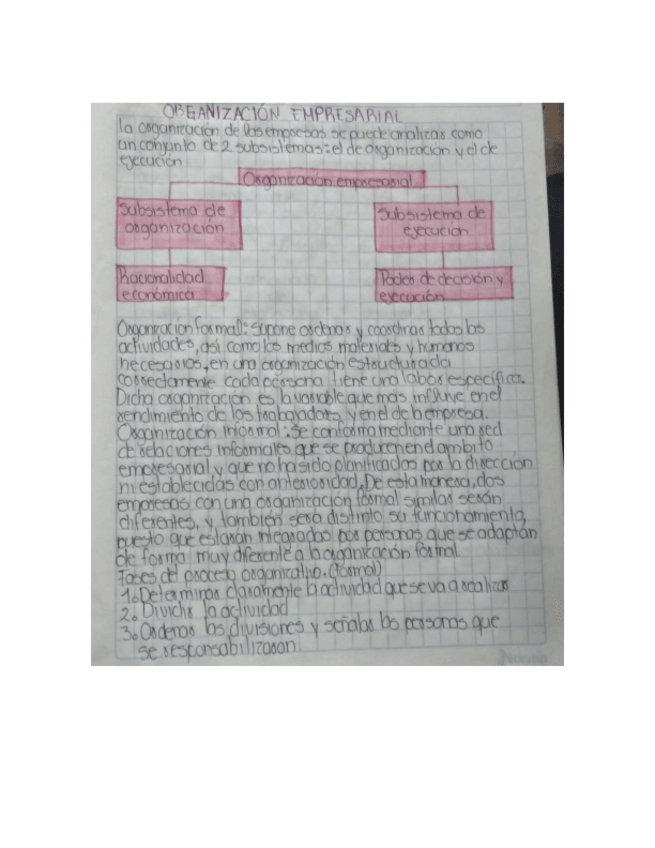 ORGANIZACIÓN EMPRESARIAL
la organización de las empresas se puede analizar como
un conjunto de 2 subsistemas: el de organización y el de
ejecución
Organización empresarial
Subsistema de
organización
Subsistema de
ejecución
Racionalidad
económica
Poder de decisión y
ejecución
Organización formal: Supone ordenar y coordinar todas las
actividades, así como los medios materiales y humanos
necesarios, en una organización estructurada
correctamente cada persona tiene una labor específica.
Dicha organización es la variable que mas influye en el
rendimiento de los trabajadores, y en el de la empresa.
Organización informal: Se conforma mediante una red
de relaciones informales que se producen en el ambito
empresarial y que no ha sido planificadas por la dirección
ni establecidas con anterioridad. De esta manera, dos
empresas con una organización formal similar serán
diferentes, y también será distinto su funcionamiento,
puesto que estaran integrados por personas que se adaptan
de forma muy diferente a la organización formal.
Fases del proceso organizativo. (formal)
1. Determinar claramente la actividad que se va a realizar
2. Dividir la actividad
3. Ordenar las divisiones y señalar las personas que
se responsabilizaran
norma